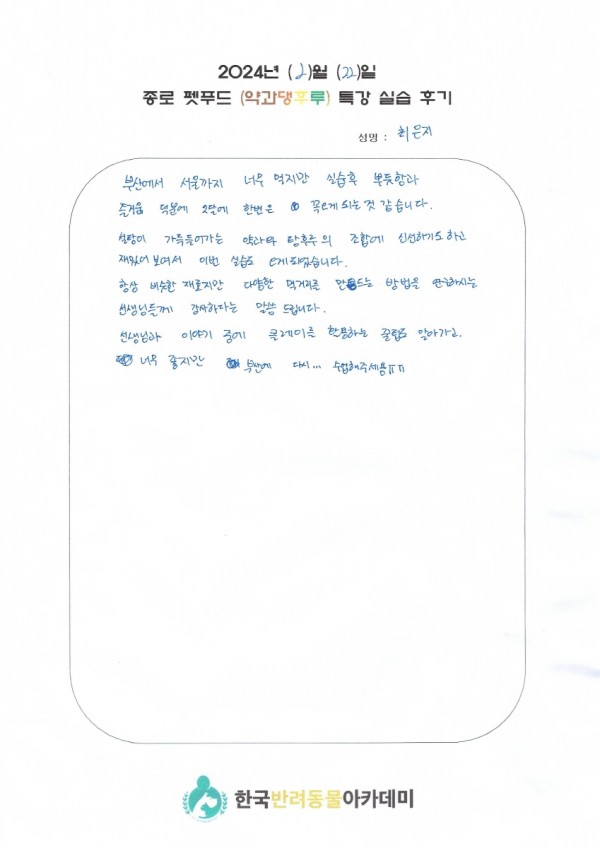 2024년 (2)월 (22)일
종로 펫푸드 (약과댕후루) 특강 실습 후기
성명 : 최은지
부산에서 서울까지 너무 멀지만 실습후 뿌듯함과
즐거움 덕분에 2달에 한번은 꼭오게되는것 같습니다.
설탕이 가득들어가는 약과와 탕후루의 조합에 신선하기도 하고
재밌어보여서 이번 실습도 오게되었습니다.
항상 비슷한 재료지만 다양한 먹거리를 만드는 방법을 연구하시는
선생님들께 감사하다는 말씀 드립니다.
선생님과 이야기 중에 클레이를 활용하는 꿀팁도 알아가고.
너무 좋지만 부산에 다시... 수업해주세용ㅠㅠ
한국반려동물아카데미